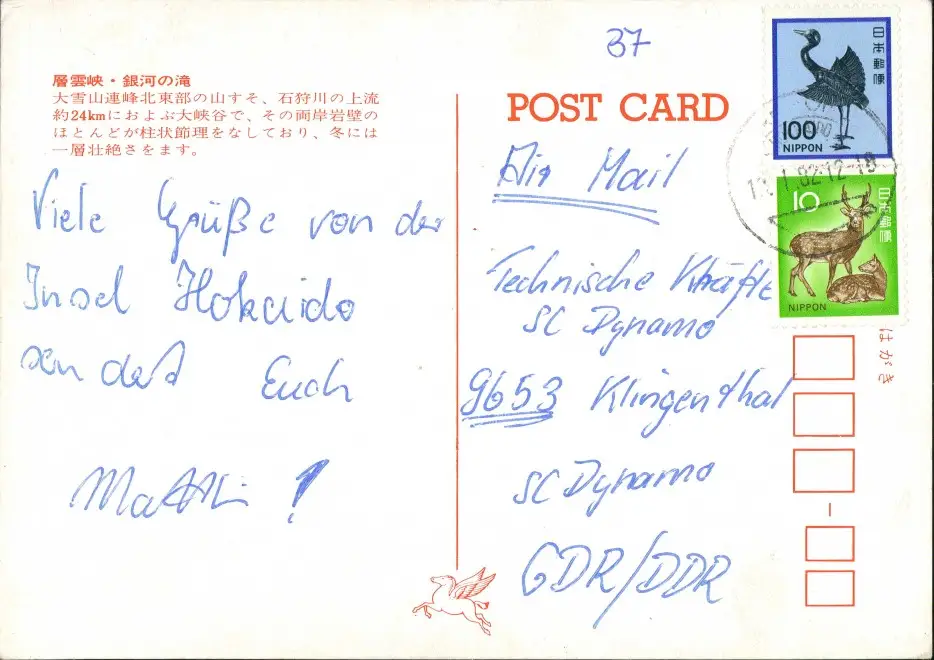 37
層雲峡・銀河の滝
大雪山連峰北東部の山すそ、石狩川の上流
約24kmにおよぶ大峡谷で、その両岸岩壁の
ほとんどが柱状節理をなしており、冬には
一層壮絶さをます。
Viele Grüße von der
Insel Hokaido
sendet Euch
Matthi!
POST CARD
Air Mail
Technische Kräfte
SC Dynamo
9653 Klingenthal
SC Dynamo
GDR/DDR
日本郵便
100
NIPPON
1.82.12-18
10
日本郵便
NIPPON
はがき